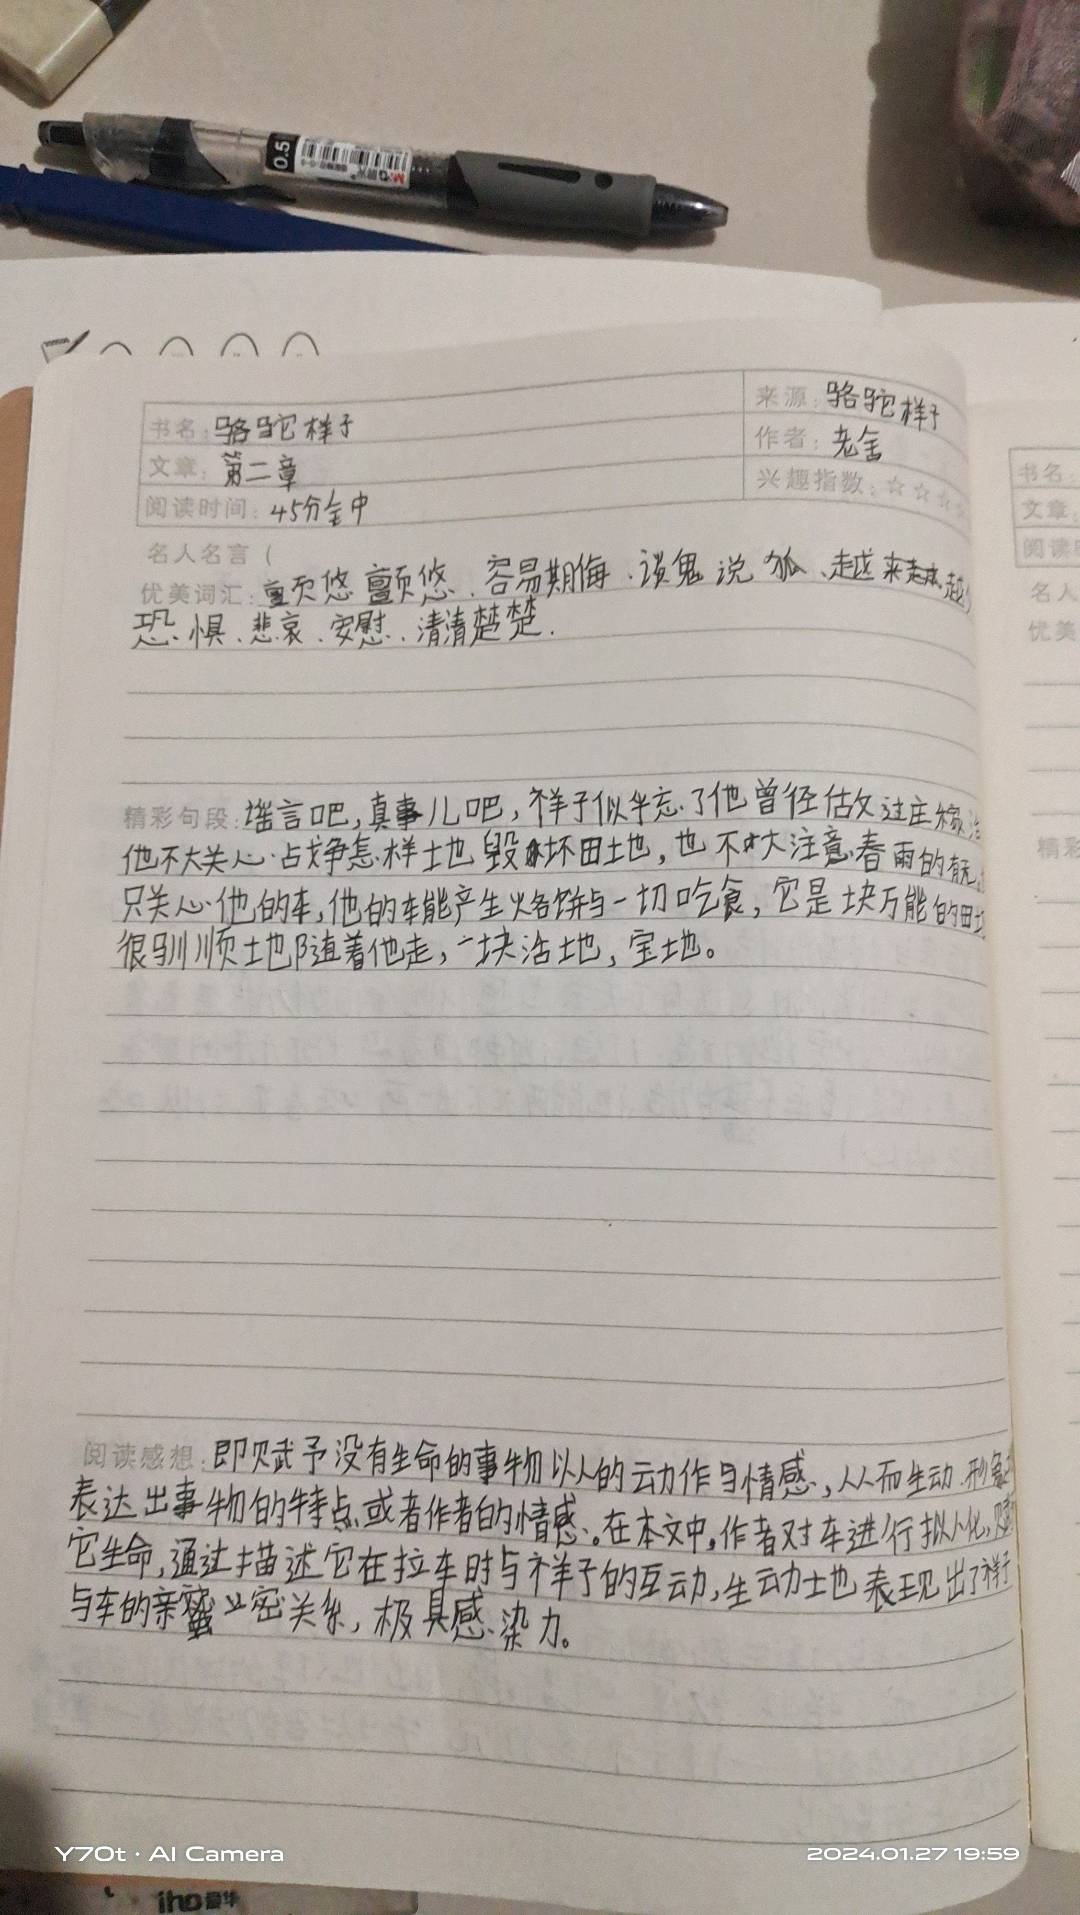 0.5
书名：骆驼样子
来源：骆驼样子
文章：第二章
作者：老舍
阅读时间：45分全中
兴趣指数：☆☆☆☆
名人名言（
优美词汇：颤悠颤悠、容易期侮、谈鬼说狐、越来越
恐惧、悲哀、安慰、清清楚楚.
精彩句段：谣言吧,真事儿吧,祥子似乎忘了他曾经估过庄稼活
他不大关心占争怎样土地毁坏田地,也不大注意春雨的有无
只关心他的车,他的车能产生烙饼与一切吃食,它是块万能的田地
很驯顺土地随着他走,一块活地,宝地。
阅读感想：即赋予没有生命的事物以人的动作与情感,从而生动形象
表达出事物的特点或者作者的情感。在本文中,作者对车进行拟人化,
它生命,通过描述它在拉车时与祥子的互动,生动土地表现出了祥子
与车的亲密关系,极具感染力。
书名：
文章：
阅读
名人
优美
精彩
Y70t · AI Camera
2024.01.27 19:59